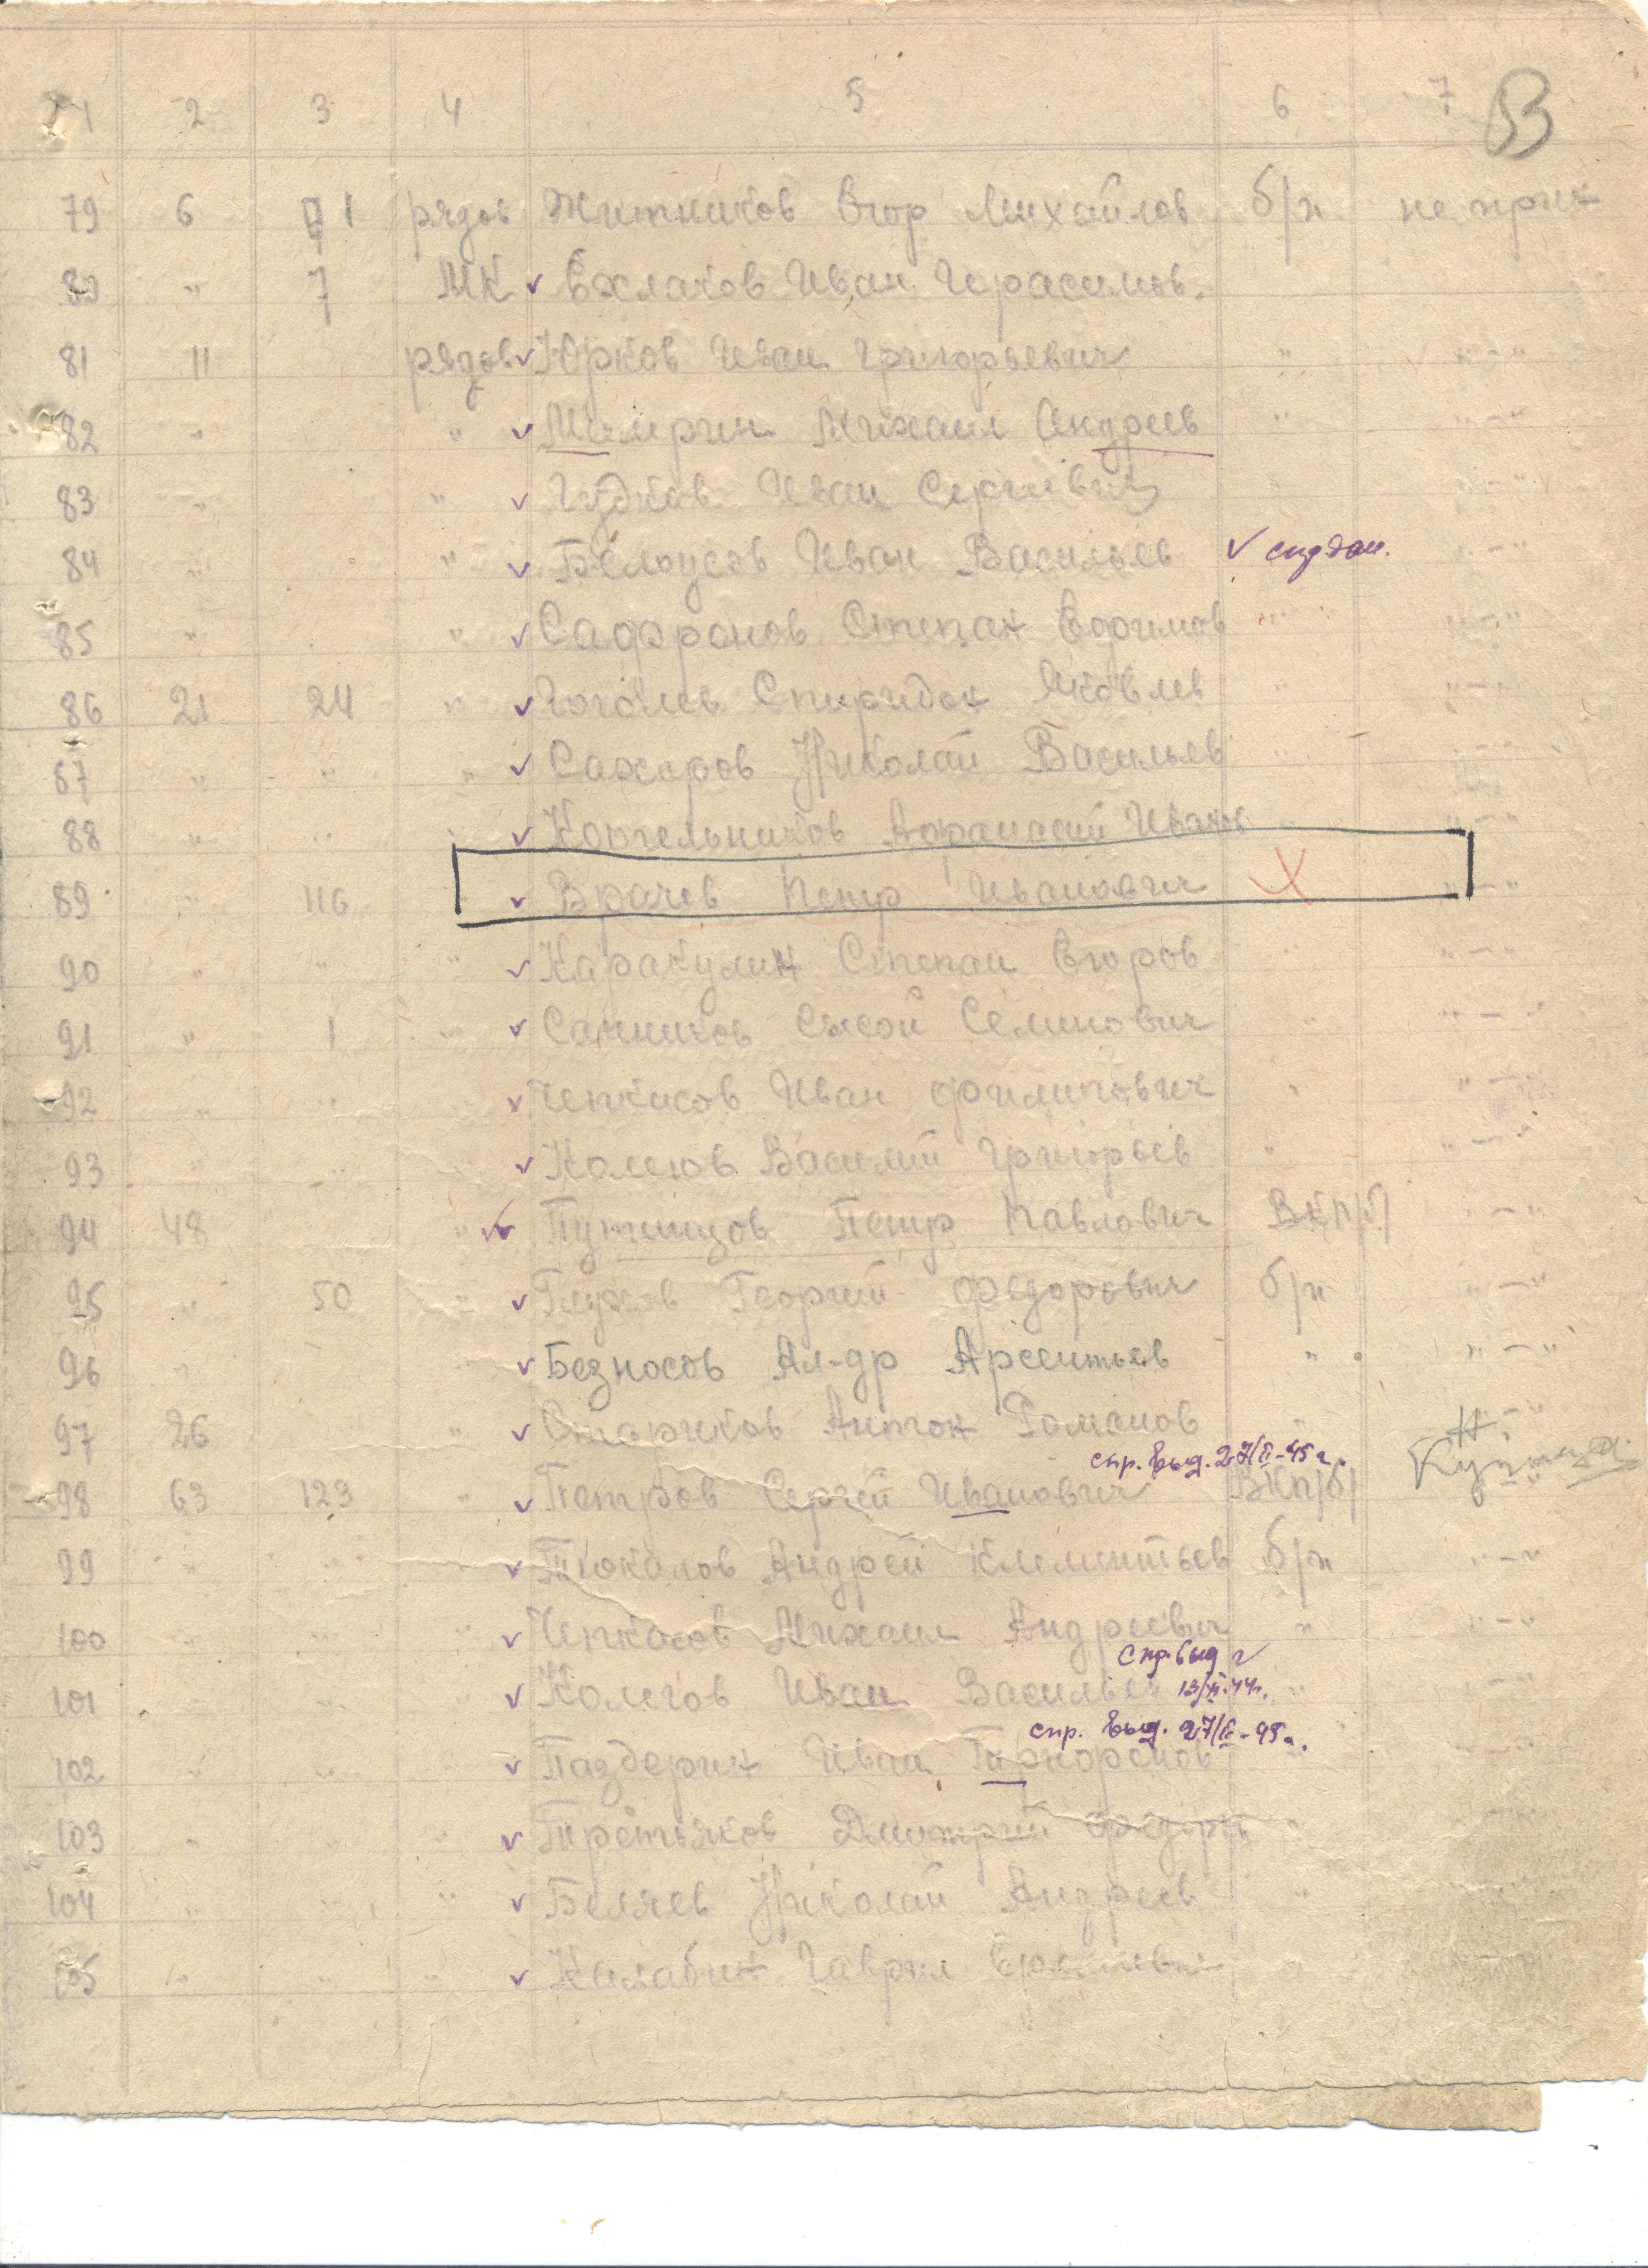 1 2 3 4 5 6 7 83
79 6 1 рядов Житников Егор Михайлов б/п не прик
80 " 7 МК Ехлаков Иван Герасимов
81 11 рядов Юрков Иван Григорьевич " "-"
82 " " Михаил Андреев " "-"
83 " " Гудков Иван Сергеевич " "-"
84 " " Белоусов Иван Васильев "-"
85 " " Сафронов Степан Ефимов " "-"
86 21 24 " Гоголев Спиридон Яковлев " "-"
87 " " " Сахаров Николай Васильев "
88 " " Котельников Афанасий Иванов "-"
89 " 116 Врачев Петр Иванович Х "-"
90 " " " Каракулин Степан Егоров " "-"
91 " 1 " Санников Сысой Семинович " "-"
92 " " Чепкасов Иван Филипович " "-"
93 " " Колегов Василий Григорьев " "-"
94 48 " Путинцов Петр Павлович ВКП/б/ "-"
95 " 50 " Глухов Георгий Федорович б/п "-"
96 " Безносов Ал-др Арсентьев " "-"
97 26 " Стариков Антон Романов " "-"
спр. выд. 27/II-45 г.
98 63 123 " Петров Сергей Иванович ВКП/б/
99 " " " Тюкалов Андрей Клементьев б/п "-"
100 " " " Чепкасов Михаил Андреевич " "-"
спр. выд
101 " " Колегов Иван Васильев 13/XI-44г. " "-"
спр. выд. 27/II-45г.
102 " " " Паздерин Иван
103 " " " Третьяков Дмитрий Федоров "
104 " " " Беляев Николай Андреев "
105 " " " Калабин Гаврил